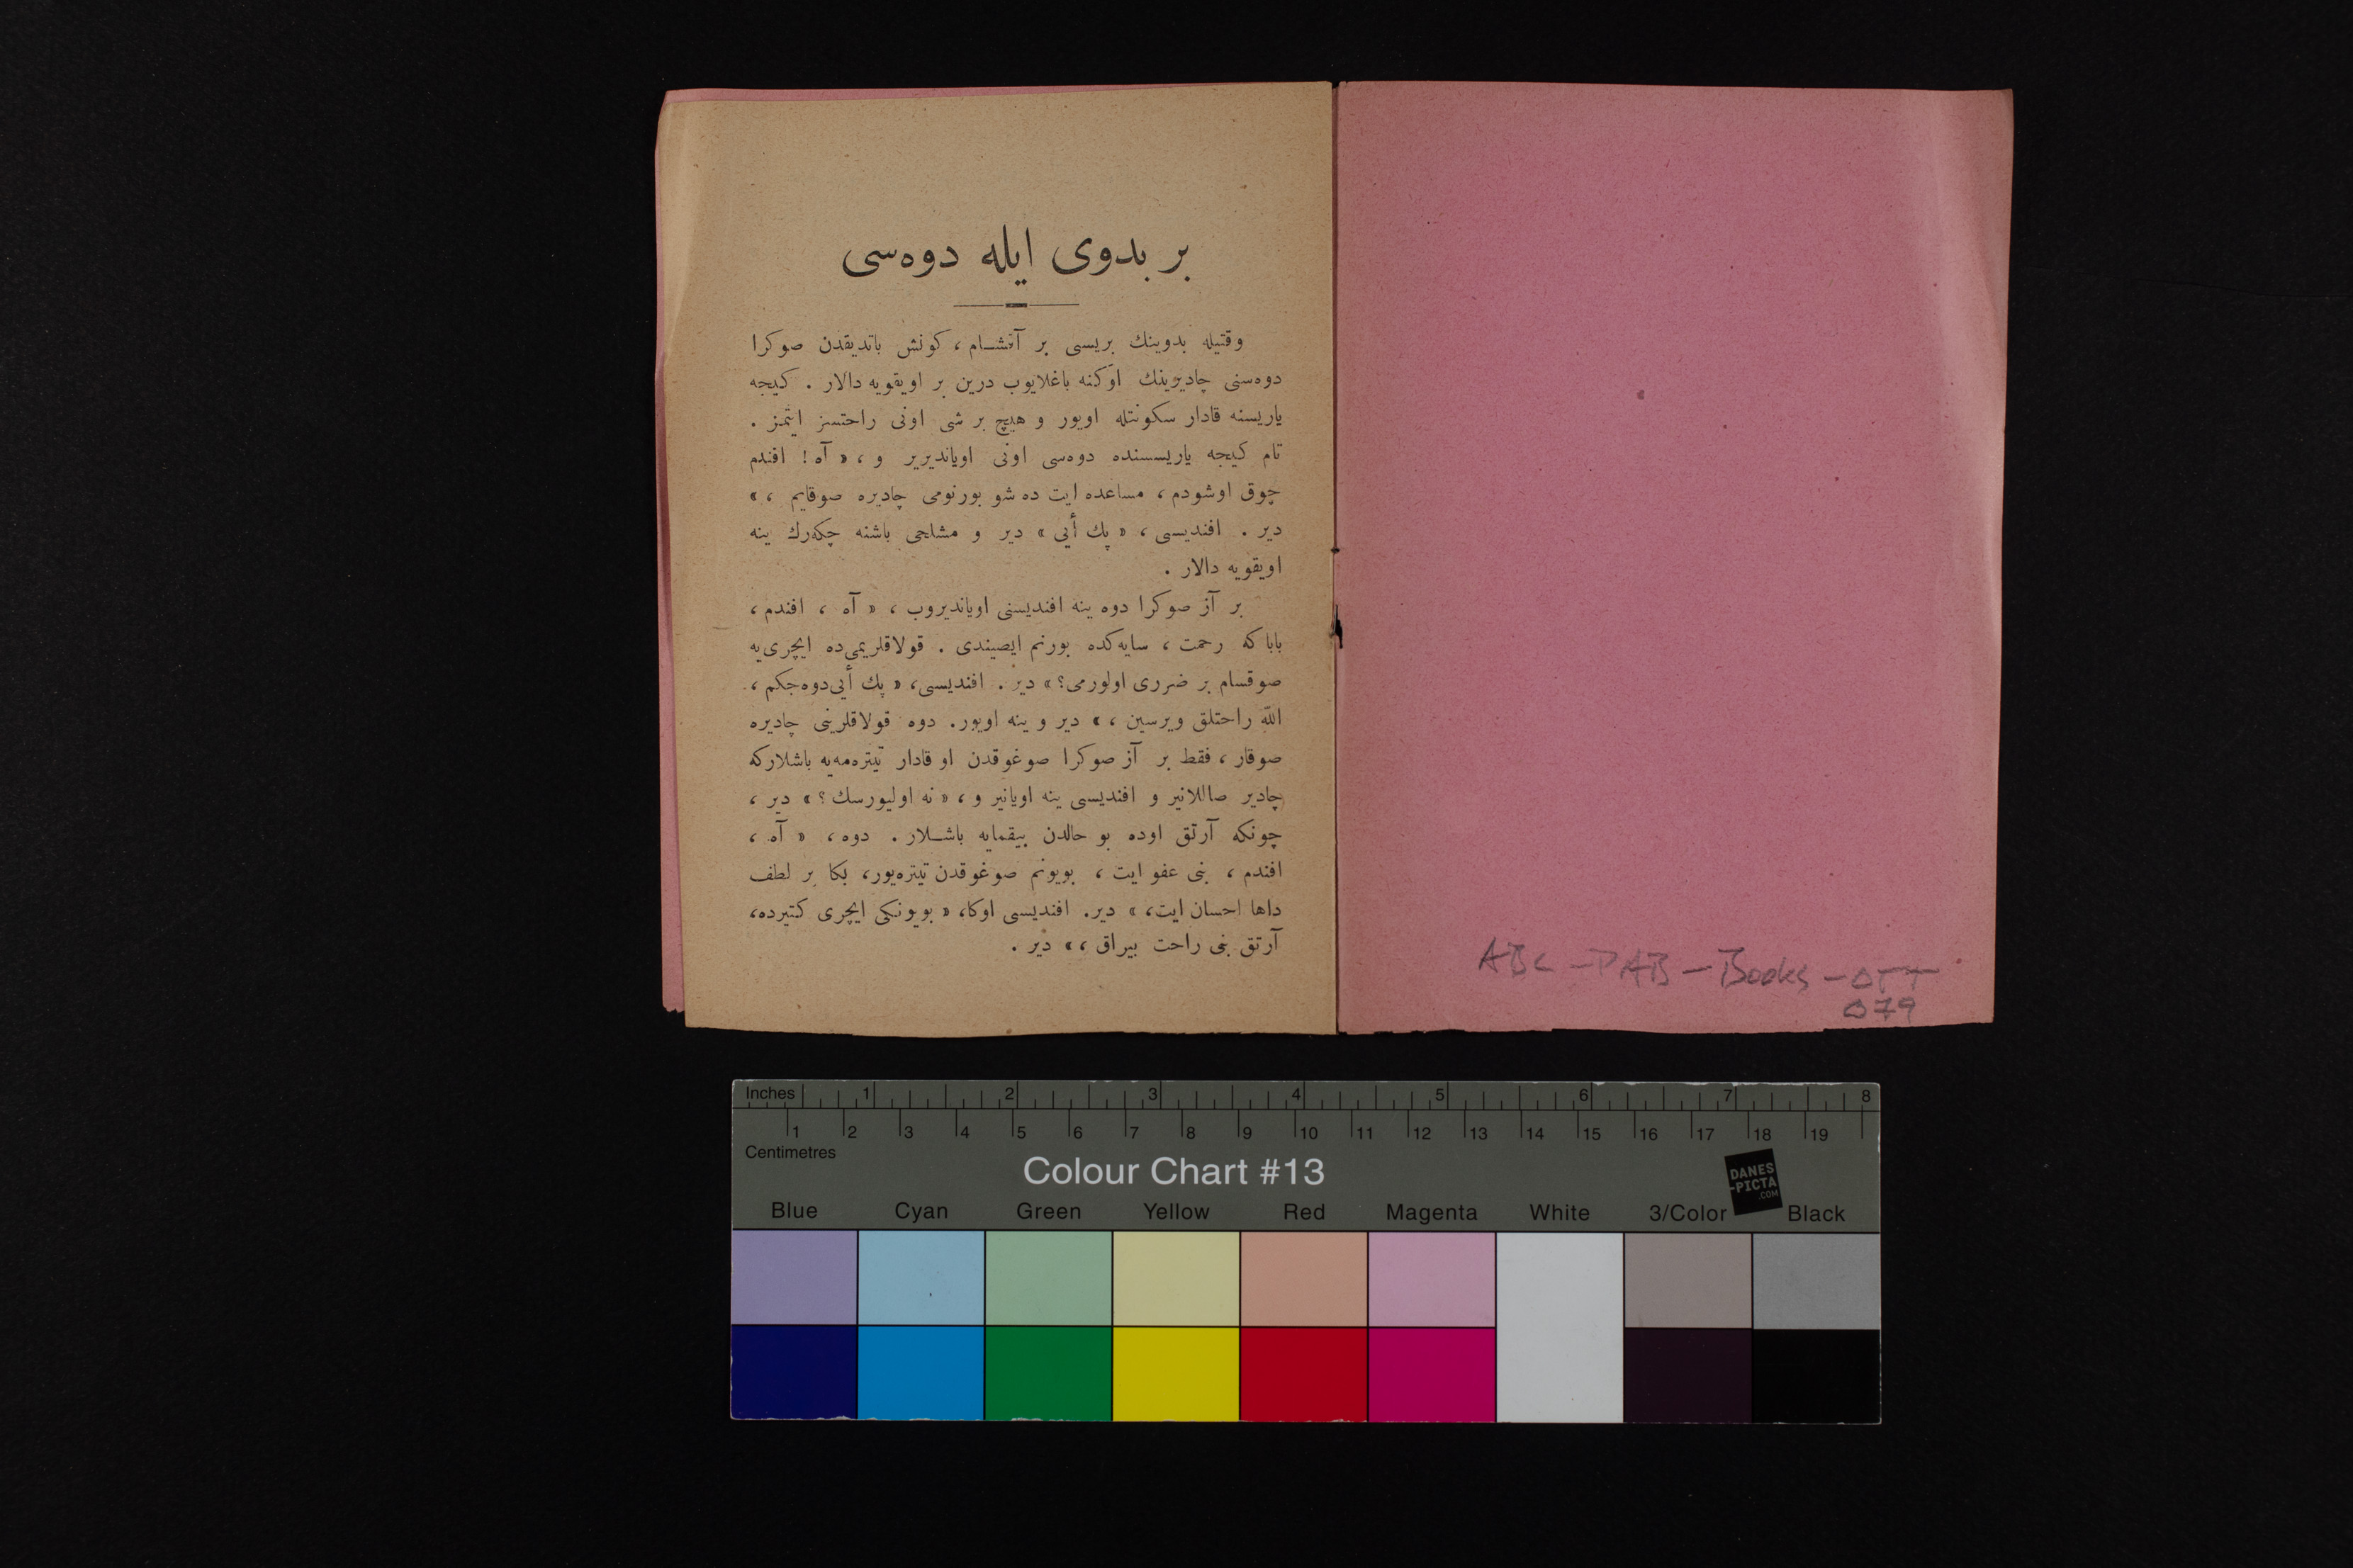 بر بدوی ایله دوه‌سی
وقتیله بدوینك بریسی بر آقشام ، كونش باتدیقدن صوكرا
دوه‌سنی چادیرینك اوكنه باغلایوب درین بر اویقویه دالار . كیجه
یاریسنه قادار سكونتله اویور و هیچ بر شی اونی راحتسز ایتمز .
تام كیجه یاریسنده دوه‌سی اونی اویاندیریر و ، « آه ! افندم
چوق اوشودم ، مساعده ایت ده شو بورنومی چادیره صوقایم ، »
دیر . افندیسی ، « پك أیی » دیر و مشلحی باشنه چكه‌رك ینه
اویقویه دالار .
بر آز صوكرا دوه ینه افندیسنی اویاندیروب ، « آه ، افندم ،
باباكه رحمت ، سایه‌كده بورنم ایصیندی . قولاقلریمی‌ده ایچری‌یه
صوقسام بر ضرری اولورمی؟ » دیر . افندیسی، « پك أیی‌دوه‌جكم ،
الله راحتلق ویرسین ، » دیر و ینه اویور. دوه قولاقلرینی چادیره
صوقار ، فقط بر آز صوكرا صوغوقدن او قادار تیتره‌مه‌یه باشلاركه
چادیر صاللانیر و افندیسی ینه اویانیر و ، « نه اولیورسك ؟ » دیر ،
چونكه آرتق اوده بو حالدن بیقمایه باشلار . دوه ، « آه ،
افندم ، بنی عفو ایت ، بویونم صوغوقدن تیتره‌یور، بكا بر لطف
داها احسان ایت، » دیر. افندیسی اوكا، « بویونكی ایچری كتیرده،
آرتق بنی راحت بیراق ، » دیر .
ABC - PAB - Books - OTT
079
Inches 1 2 3 4 5 6 7 8
1 2 3 4 5 6 7 8 9 10 11 12 13 14 15 16 17 18 19
Centimetres
Colour Chart #13
DANES
-PICTA
.COM
Blue Cyan Green Yellow Red Magenta White 3/Color Black